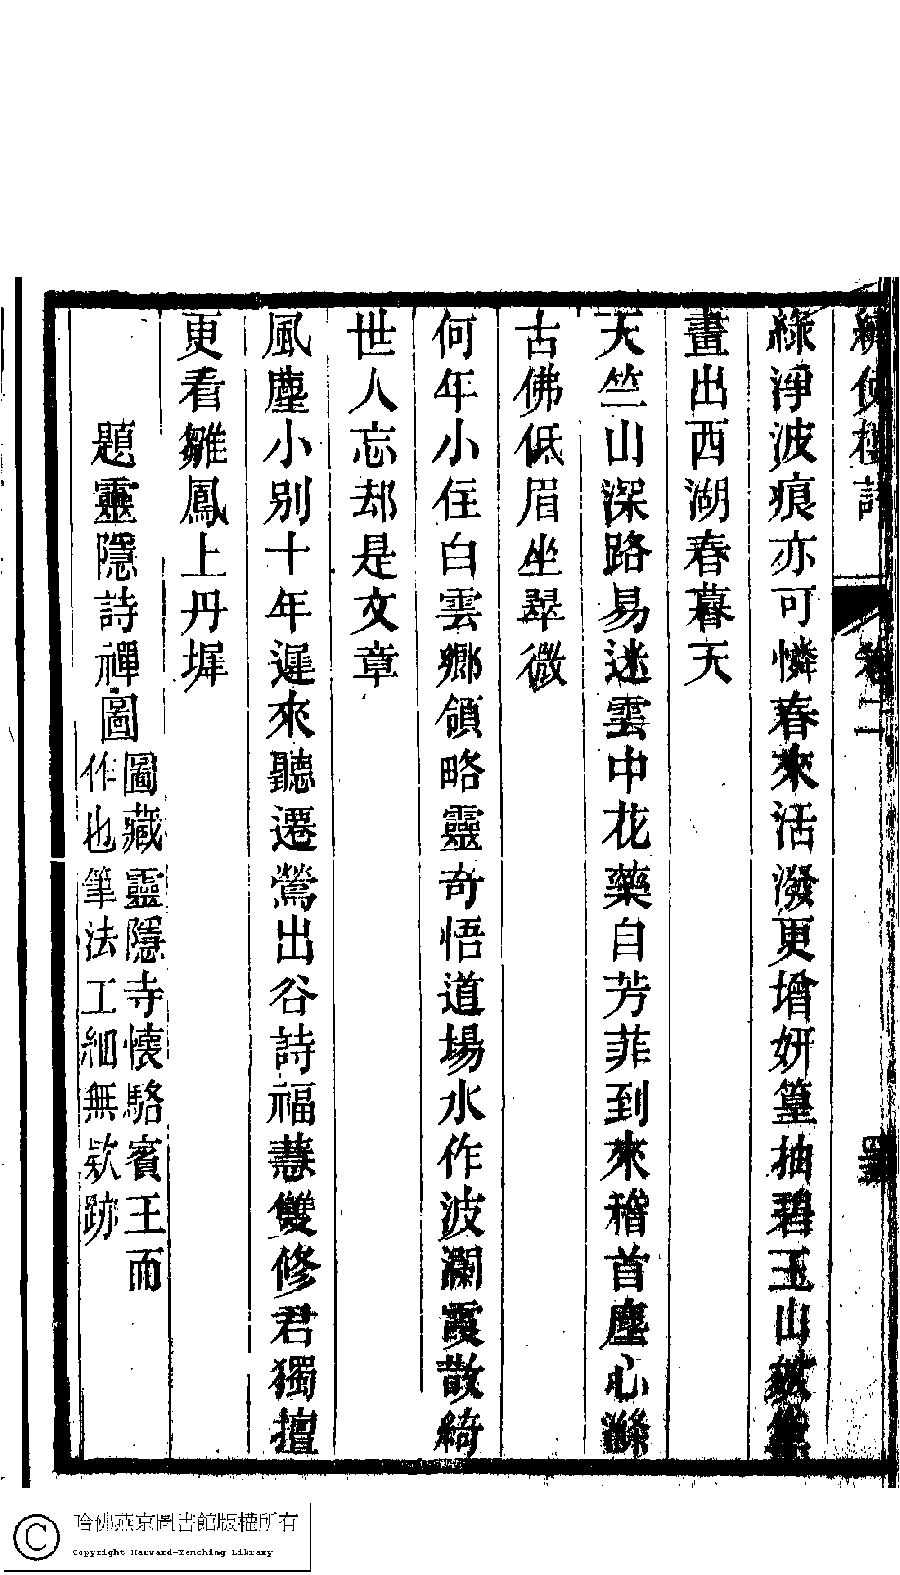 綠淨波痕亦可憐春來活潑更增妍篁抽碧玉山
畫出西湖春暮天
天竺山深路易迷雲中花藥自芳菲到來稽首塵心滌
古佛低眉坐翠微
何年小住白雲鄉領略靈奇悟道場水作波瀾霞散綺
世人忘却是文章
風塵小別十年遲來聽遷鶯出谷詩福慧雙修君獨擅
更看雛鳳上丹墀
題靈隱詩禪圖
圖藏靈隱寺懷駱賓王而
作也筆法工細無欵跡
樓詩
卷二
哈佛燕京圖書館版權所有
Copyright Harvard-Yenching Library